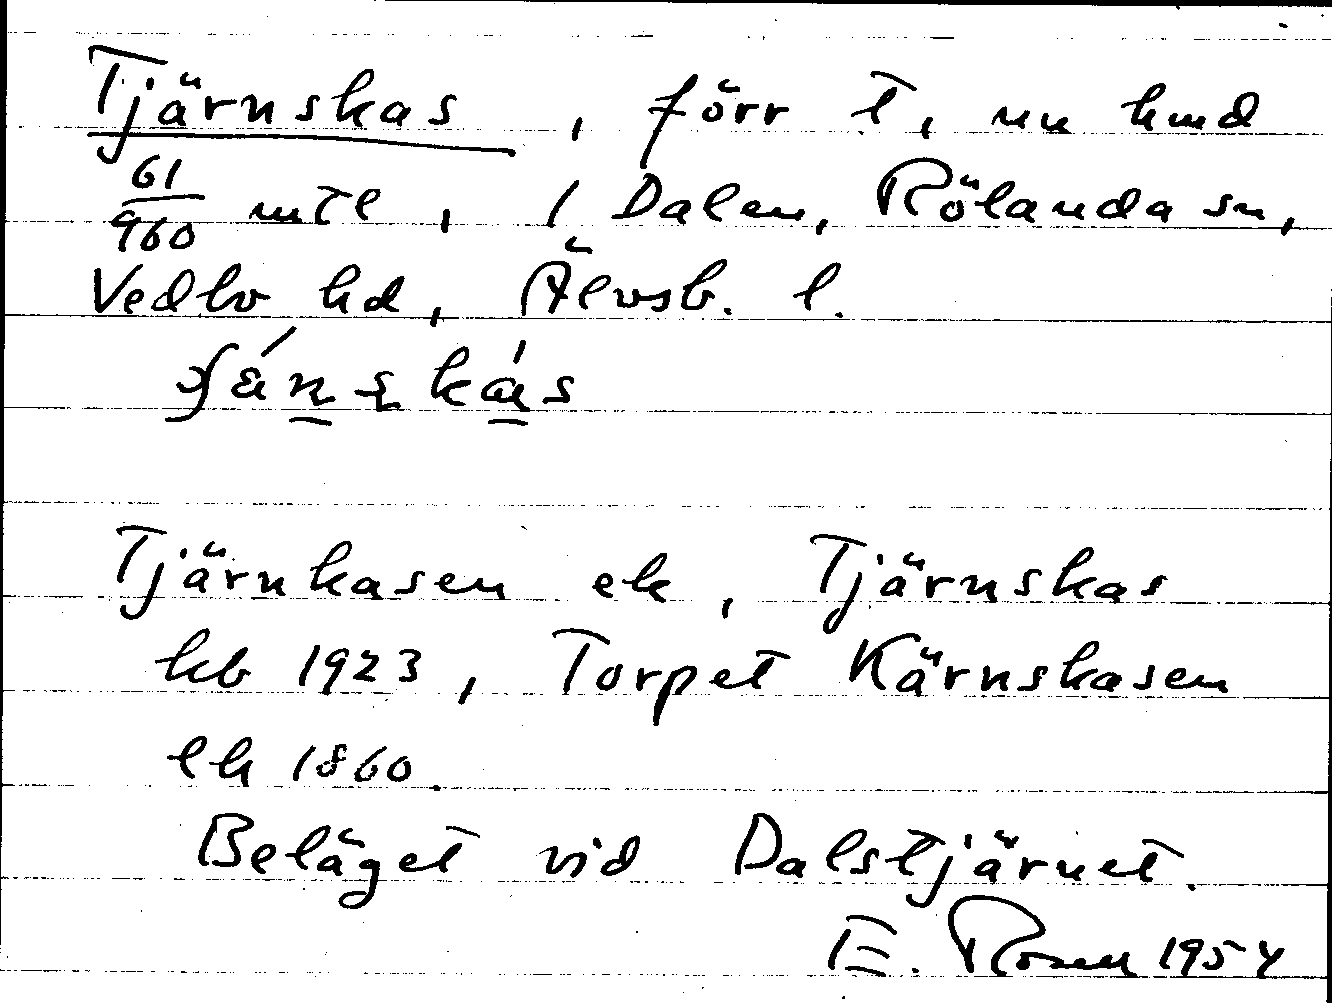 Tjärnskas, förr t, nu hmd
61/960 mtl, 1 Dalen, Rölanda sn,
Vedbo hd, Älvsb. l.
Tjärnkasen ek, Tjärnskas
kb 1923, Torpet Kärnskasen
lh 1860.
Beläget vid Dalstjärnet.
E. Rosen 1954